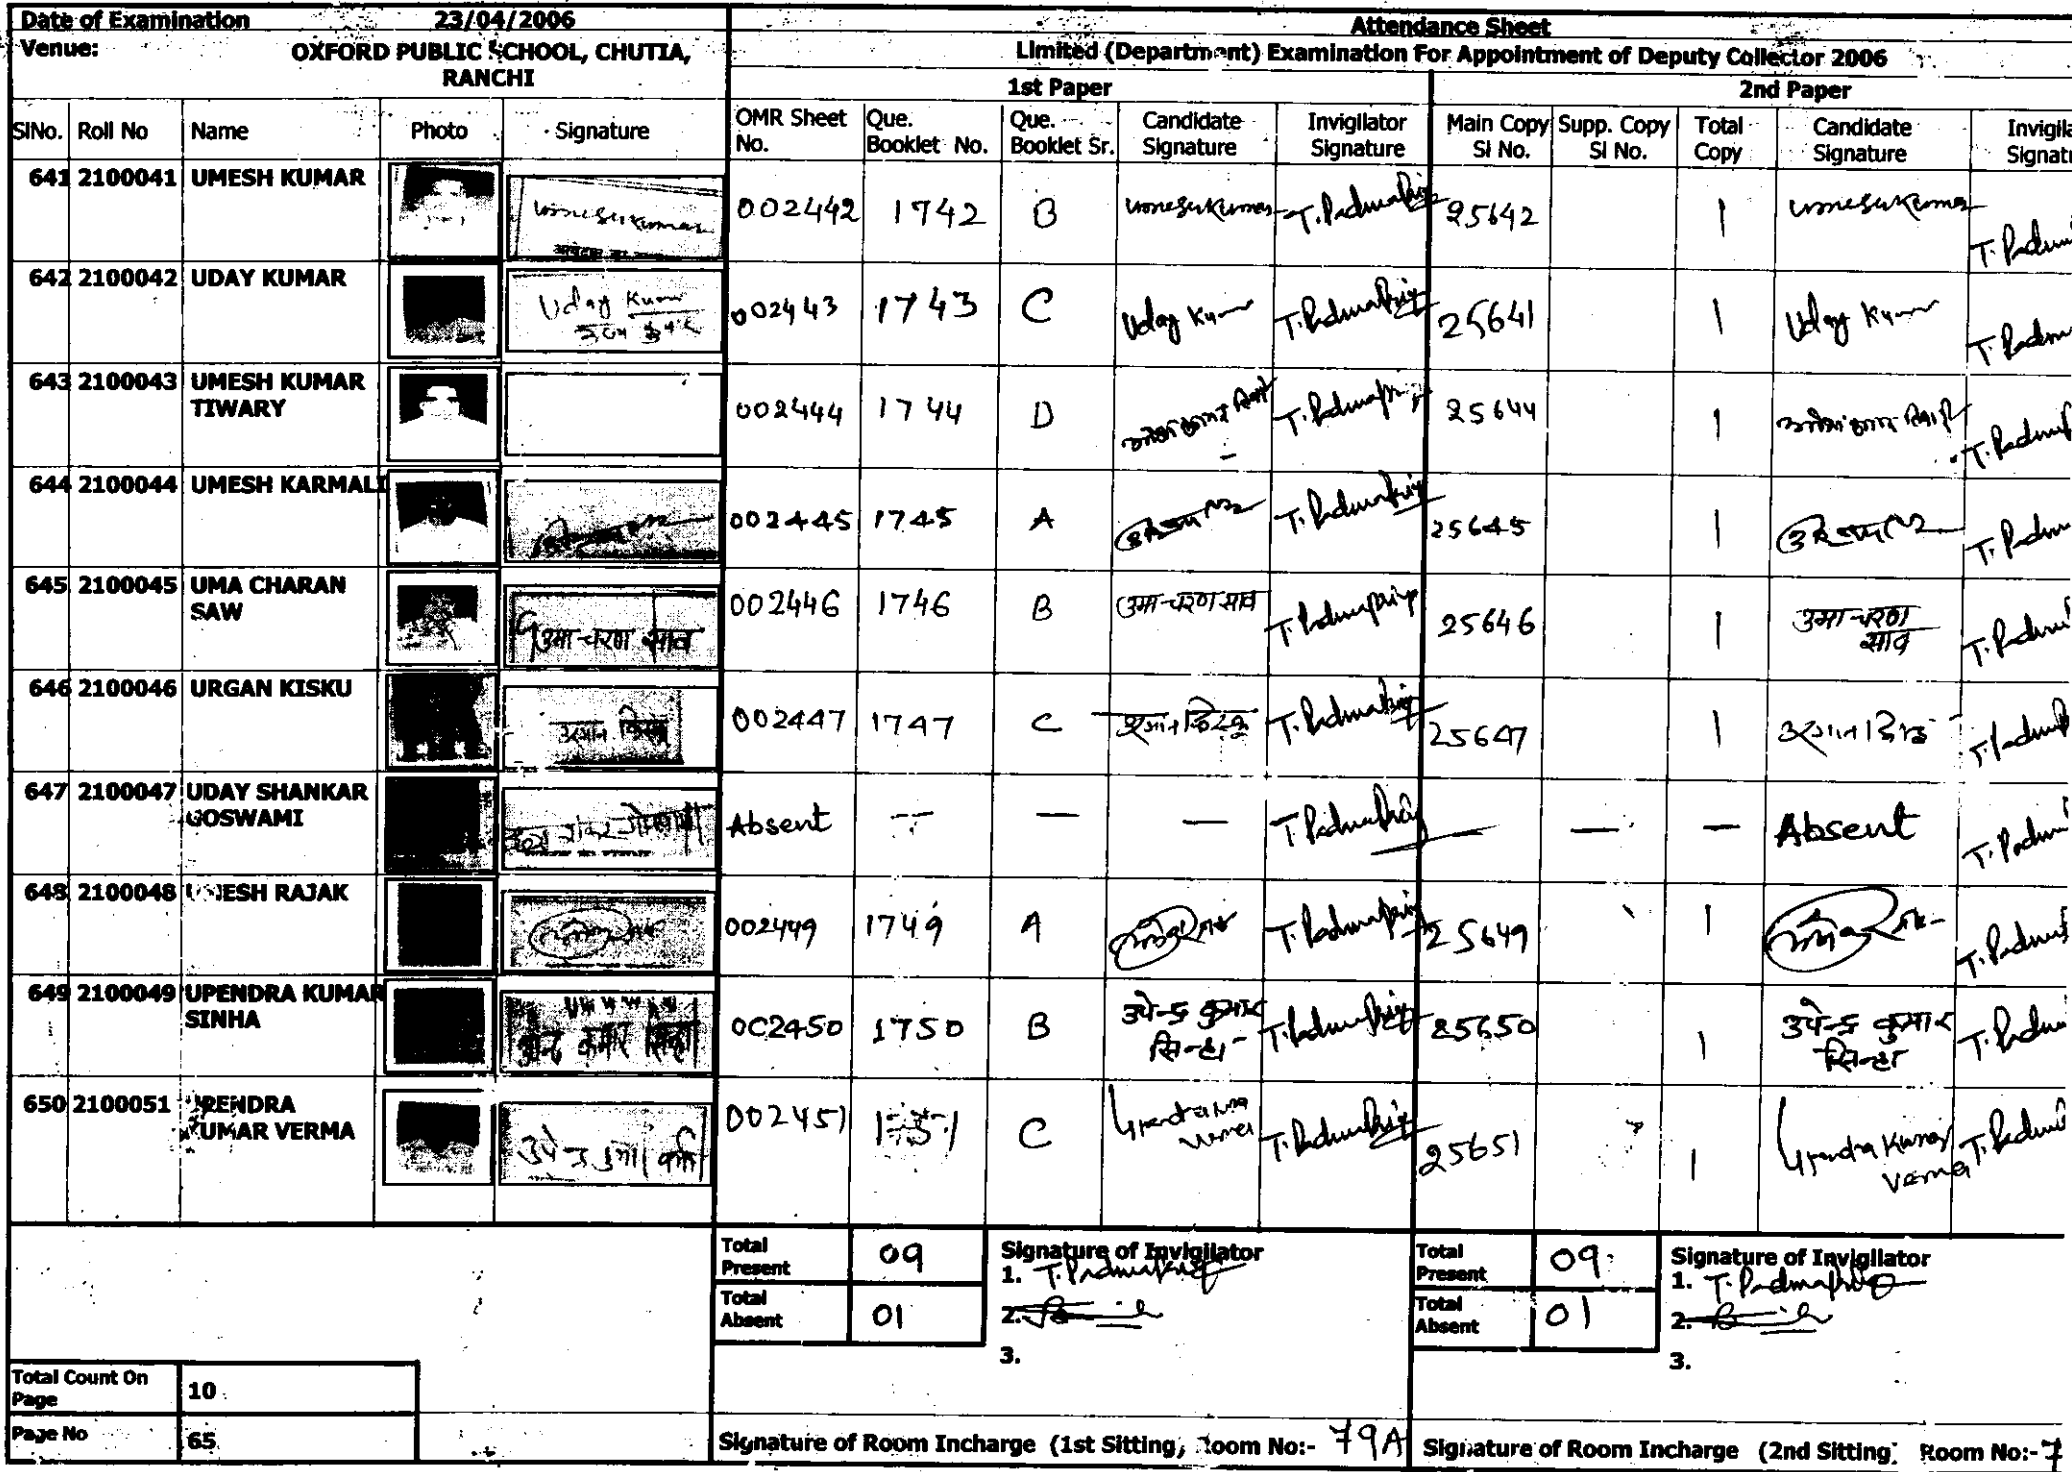 Date of Examination 23/04/2006
Venue: OXFORD PUBLIC SCHOOL, CHUTIA,
RANCHI
Attendance Sheet
Limited (Department) Examination For Appointment of Deputy Collector 2006
1st Paper 2nd Paper
SlNo. Roll No Name Photo Signature OMR Sheet No. Que. Booklet No. Que. Booklet Sr. Candidate Signature Invigilator Signature Main Copy Sl No. Supp. Copy Sl No. Total Copy Candidate Signature
641 2100041 UMESH KUMAR 002442 1742 B T. Padmapriya 25642 1
642 2100042 UDAY KUMAR Uday Kumar 002443 1743 C Uday Kumar T. Padmapriya 25641 1 Uday Kumar
643 2100043 UMESH KUMAR
TIWARY 002444 1744 D T. Padmapriya 25644 1
644 2100044 UMESH KARMALI 002445 1745 A T. Padmapriya 25645 1
645 2100045 UMA CHARAN
SAW उमा चरण साव 002446 1746 B उमा चरण साव T. Padmapriya 25646 1 उमा चरण
साव
646 2100046 URGAN KISKU 002447 1747 C T. Padmapriya 25647 1
647 2100047 UDAY SHANKAR
GOSWAMI Absent — — — T. Padmapriya — — — Absent
648 2100048 RAJAK 002449 1749 A T. Padmapriya 25649 1
649 2100049 UPENDRA KUMAR
SINHA 002450 1750 B उपेन्द्र कुमार
सिन्हा T. Padmapriya 25650 1 उपेन्द्र कुमार
सिन्हा
650 2100051 UPENDRA
KUMAR VERMA 002451 1751 C T. Padmapriya 25651 1 Upendra Kumar
Verma
Total Present 09 Signature of Invigilator
1. T. Padmapriya
Total Absent 01 2.
3.
Total Present 09 Signature of Invigilator
1. T. Padmapriya
Total Absent 01 2.
3.
Total Count On Page 10
Page No 65
Signature of Room Incharge (1st Sitting) Room No:- 79A
Signature of Room Incharge (2nd Sitting) Room No:- 7